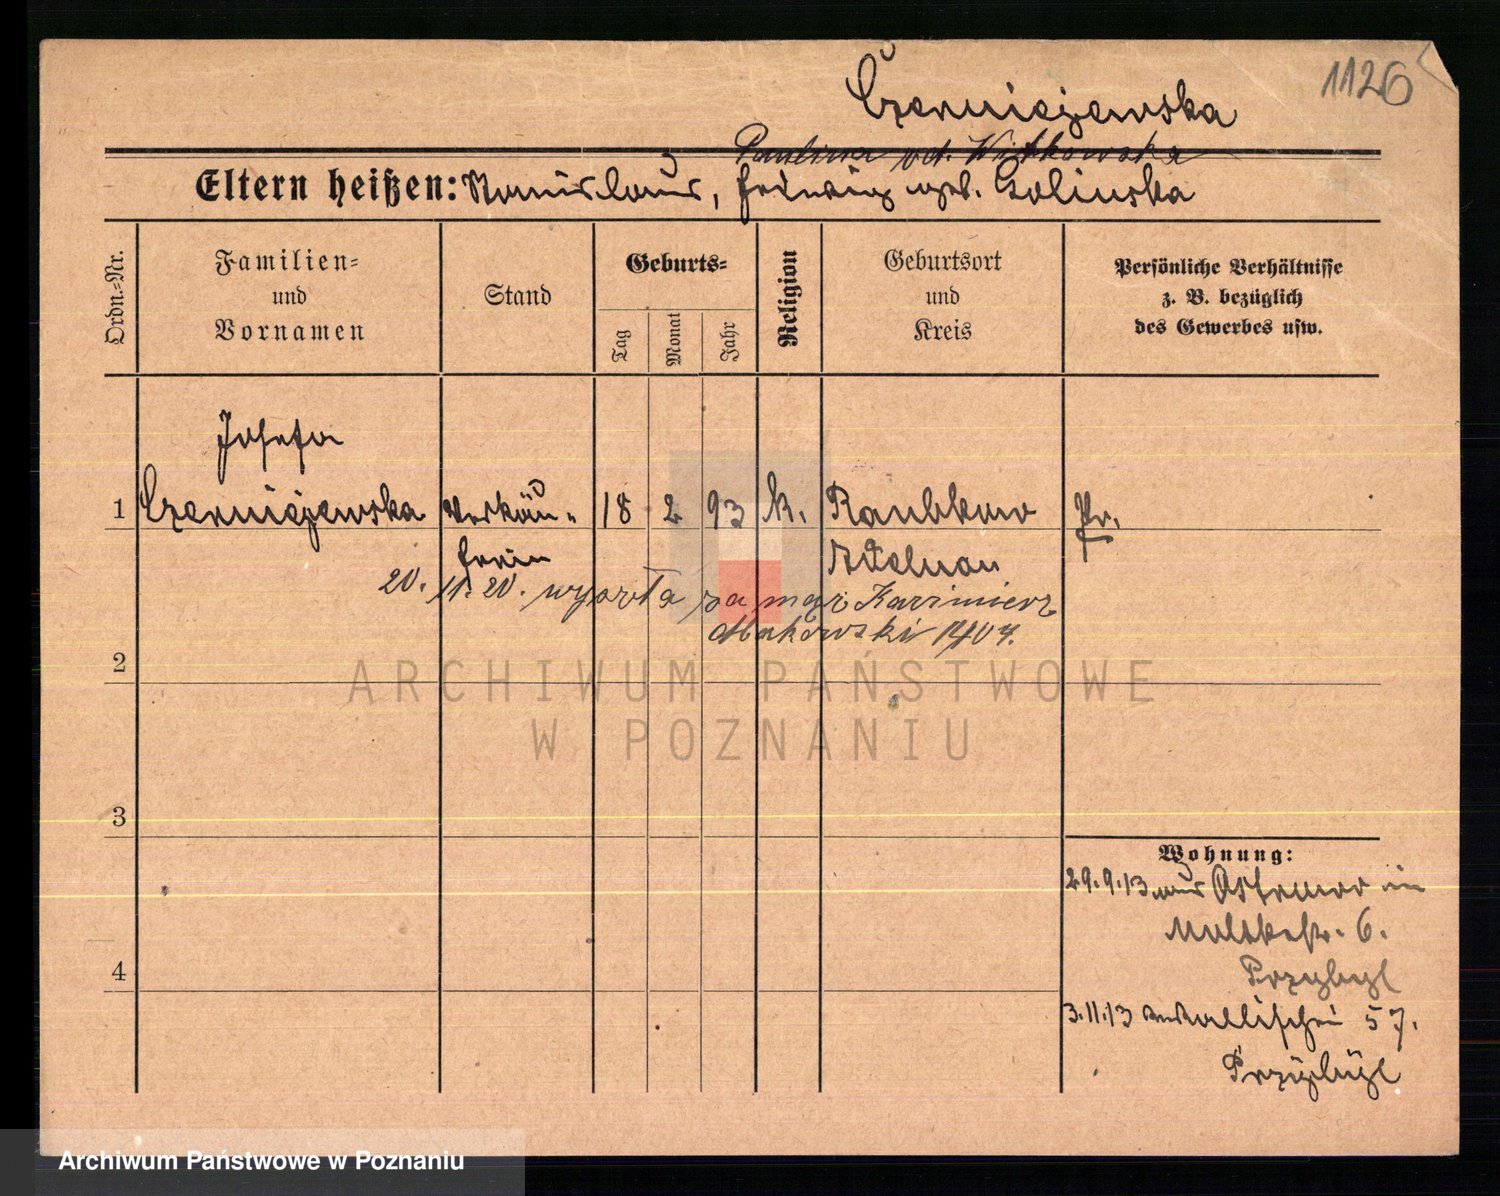 1126
Czerniejewska
Paulina wd. Witkowska
Eltern heißen: Stanislaus, Hedwig geb. Golinska
Ordn.-Nr.
Familien-
und
Vornamen
Stand
Geburts-
Tag
Monat
Jahr
Religion
Geburtsort
und
Kreis
Persönliche Verhältnisse
z. B. bezüglich
des Gewerbes usw.
Josefa
1 Czerniejewska Verkäu- 18 2 93 k. Pr.
ferin Adelnau
20. 11. 20. wyszła za mąż Kazimierz
Makowski 1404.
2
ARCHIWUM PAŃSTWOWE
W POZNANIU
3
Wohnung:
29.9.13 aus Ostrowo in
Moltkestr. 6.
Przybyl
4
3.11.13 Wallischei 57.
Przybyl
Archiwum Państwowe w Poznaniu